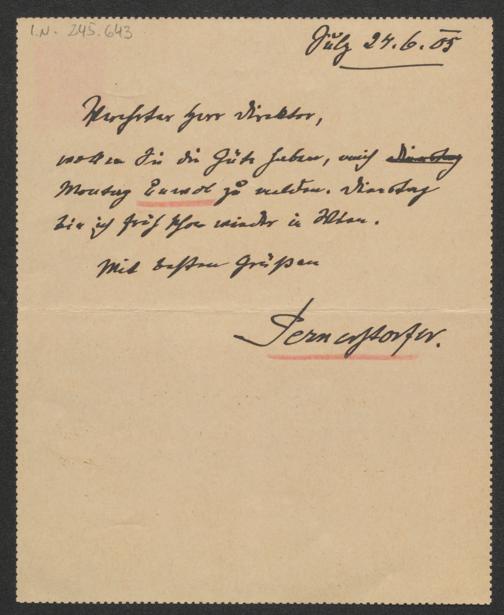 I.N. 245.643
Sulz 24.6.05
Verehrter Herr Direktor,
wollen Sie die Güte haben, mich Dienstag
Montag zu melden. Dienstag
bin ich früh schon wieder in Wien.
Mit besten Grüßen
Pernerstorfer.